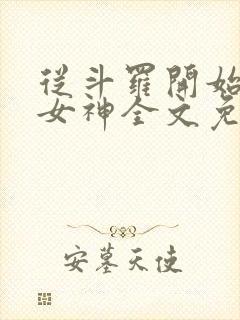 從斗羅開始
女神全文免
安墓天使